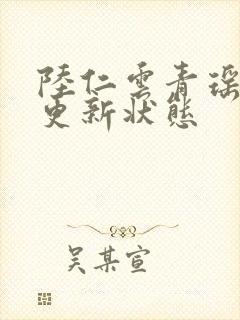 陸仁雲青瑶
更新狀態
吴某宣